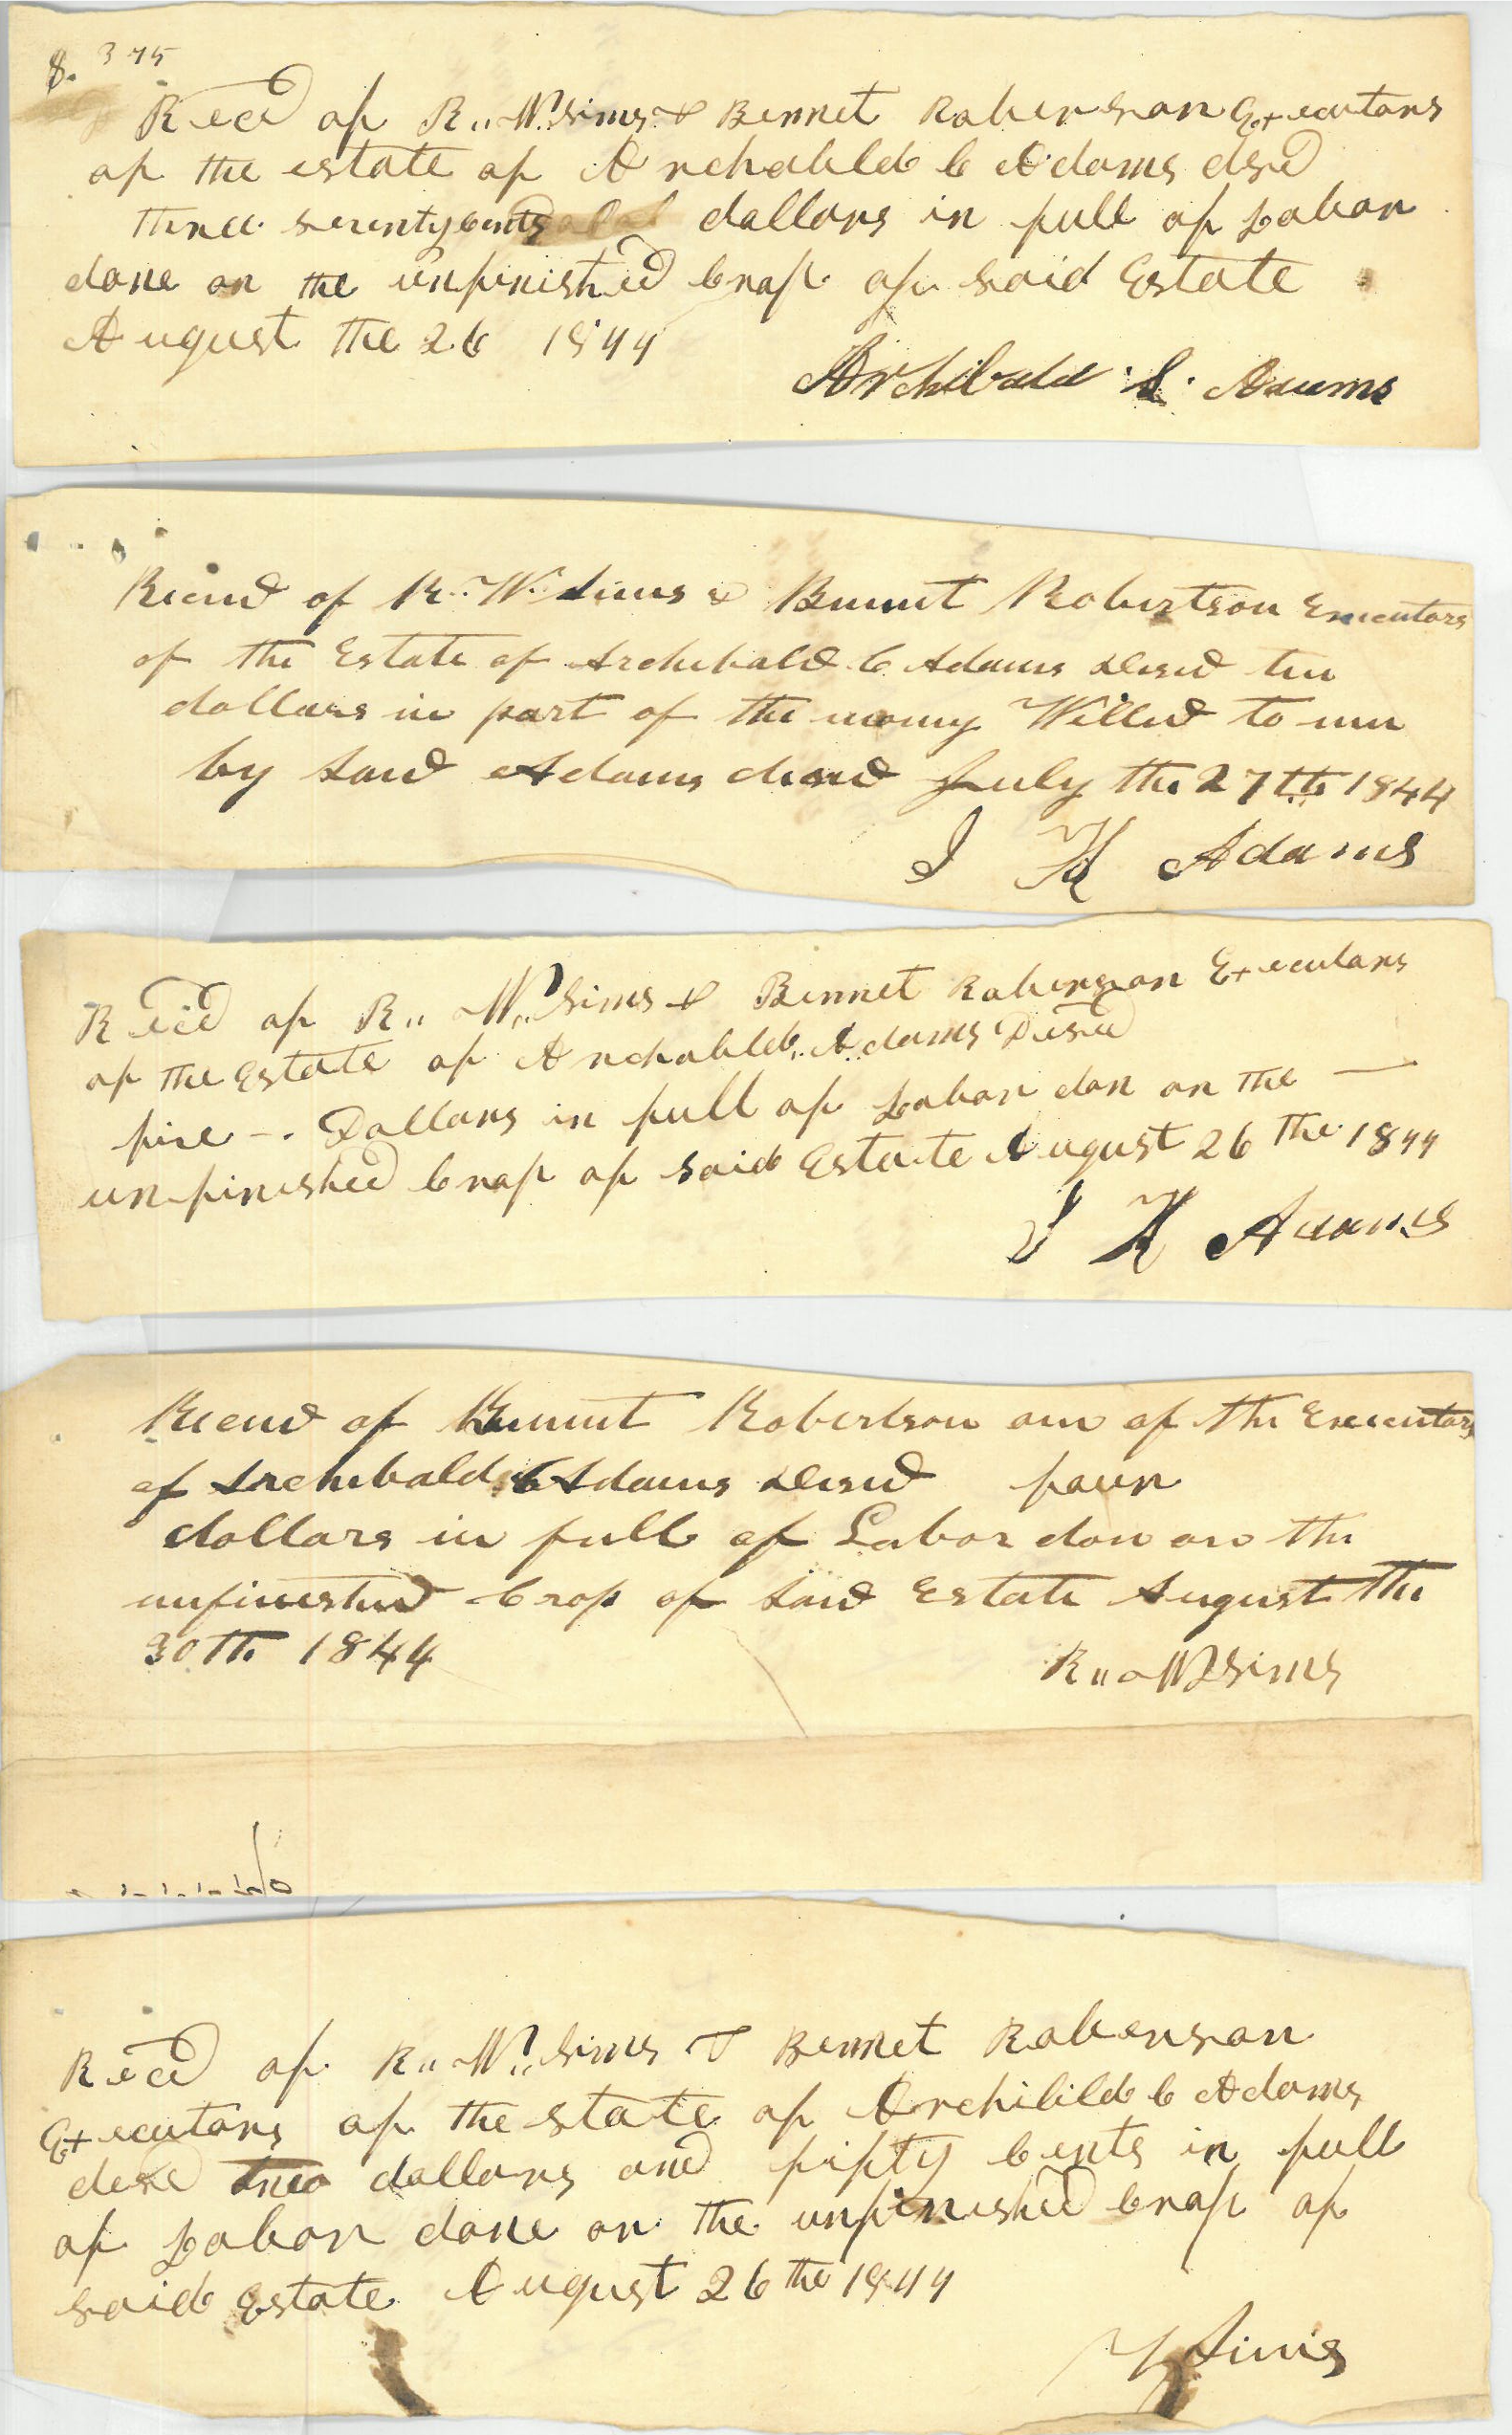 $. 3 75
Reced of R,, W. Sims & Bennet Roberson Executors
of the estate of Archabeld C Adams desd
three seventy cents dollars in full of Labor
done on the unfinished Crop of said Estate
August the 26 1844
Archibald S. Adams
Recevd of R. W. Sims & Bennet Robertson Executors
of the Estate of Archebald C Adams Desed ten
dollars in part of the money Willed to me
by Said Adams desed July the 27th 1844
I H Adams
Recied of R,, W,, Sims & Bennet Roberson Executors
of The Estate of Archabeld C. Adams Desed
five -. Dollars in full of Labor don on The —
unfinished Crop of Said Estate August 26 The 1844
I H Adams
Recevd of Bennet Robertson one of the Executors
of Archebald C Adams Desed four
dollars in full of Labor don on the
unfineshed Crop of Said Estate August the
30th 1844
R,, W Sims
Recd of R,, W,, Sims & Bennet Roberson
Executors of the state of Archibild C Adams
desd two dollars and fifty Cents in full
of Labor done on the unfinished Crop of
said Estate August 26 the 1844
Sims